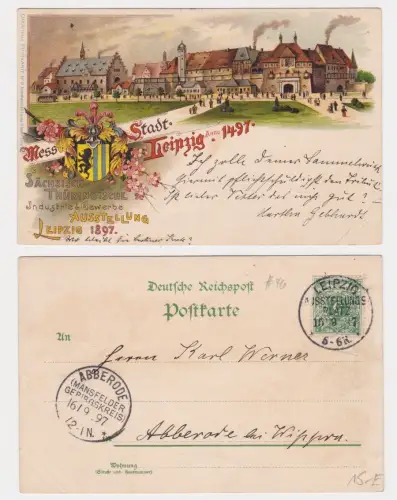 Mess Stadt
Leipzig Anno 1497.
Ich zolle Deiner Sammelwuth
hiermit pflichtschuldigst den Tribut
Martha Gebhardt.
Sächsisch
Thüringische
Industrie & Gewerbe
Ausstellung
Leipzig 1897.
Deutsche Reichspost
Postkarte
An
LEIPZIG
AUSSTELLUNGS
PLATZ
16 9 97
5-6N.
Herrn Karl Werner
ABBERODE
(MANSFELDER
GEBIRGSKREIS)
16/9.97
12-1N.
Abberode bei Wippra.
Wohnung
(Straße und Hausnummer)